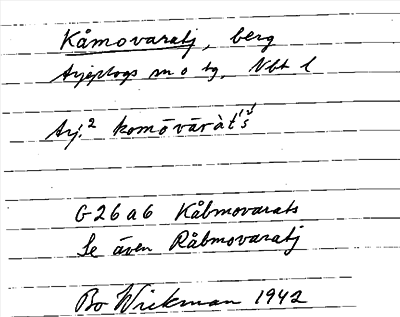 Kåmovaratj, berg
Arjeplogs sn o tg. Nbt l
Arj.² komo͞vāràt́š
G26a6 Kåbmovarats
Se även Råbmovaratj
Bo Wickman 1942